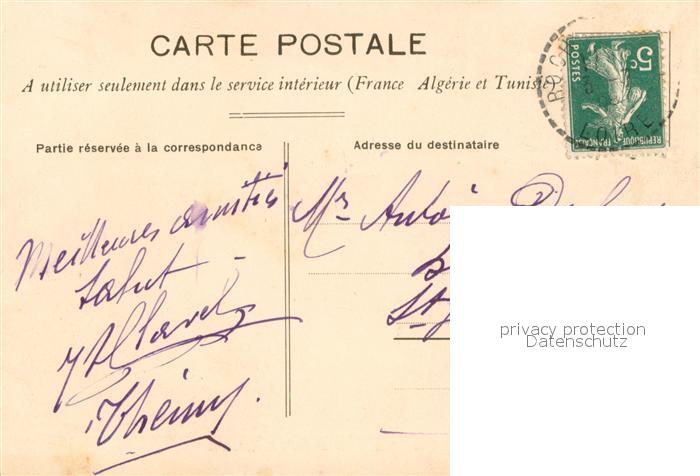 CARTE POSTALE
A utiliser seulement dans le service intérieur (France Algérie et Tunisie)
Partie réservée à la correspondance
Adresse du destinataire
5c
POSTES
REPUBLIQUE FRANÇAISE
LOIRE
Meilleures amitiés
Salut
Mr
privacy protection
Datenschutz